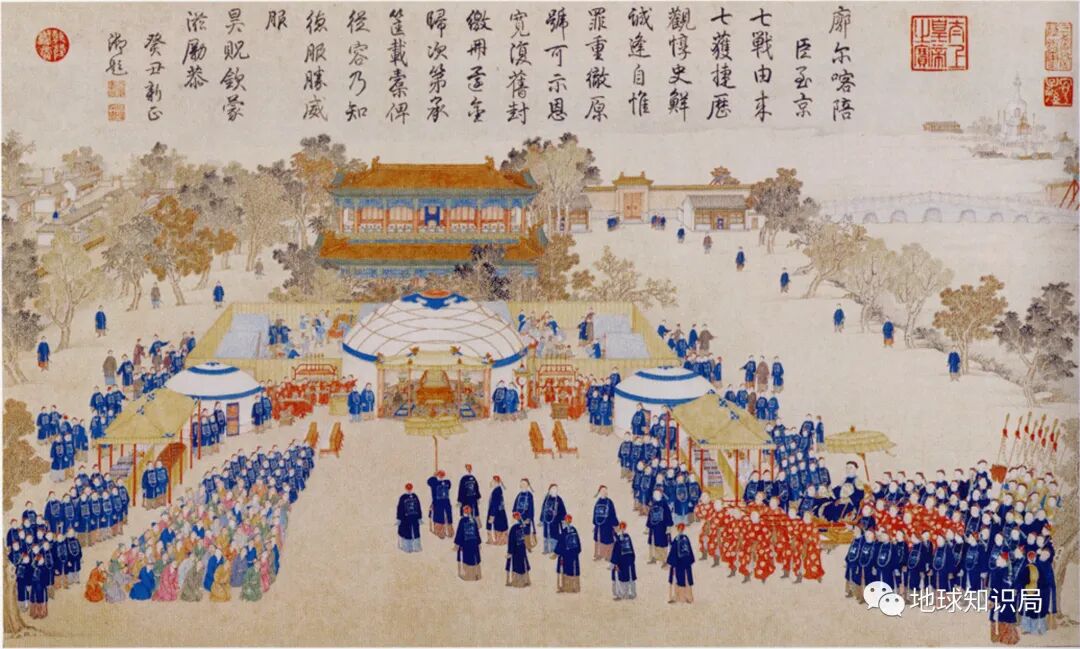 太上皇帝之寶
廓尔喀陪
臣至京
七戰由来
七獲捷歷
觀惇史鮮
誠逢自惟
罪重徹原
號可示恩
寬復舊封
繳冊還金
歸次第承
筐載橐俾
從容乃知
德服勝威
服
昊貺欽蒙
滋勵恭
癸丑新正
御題
地球知识局